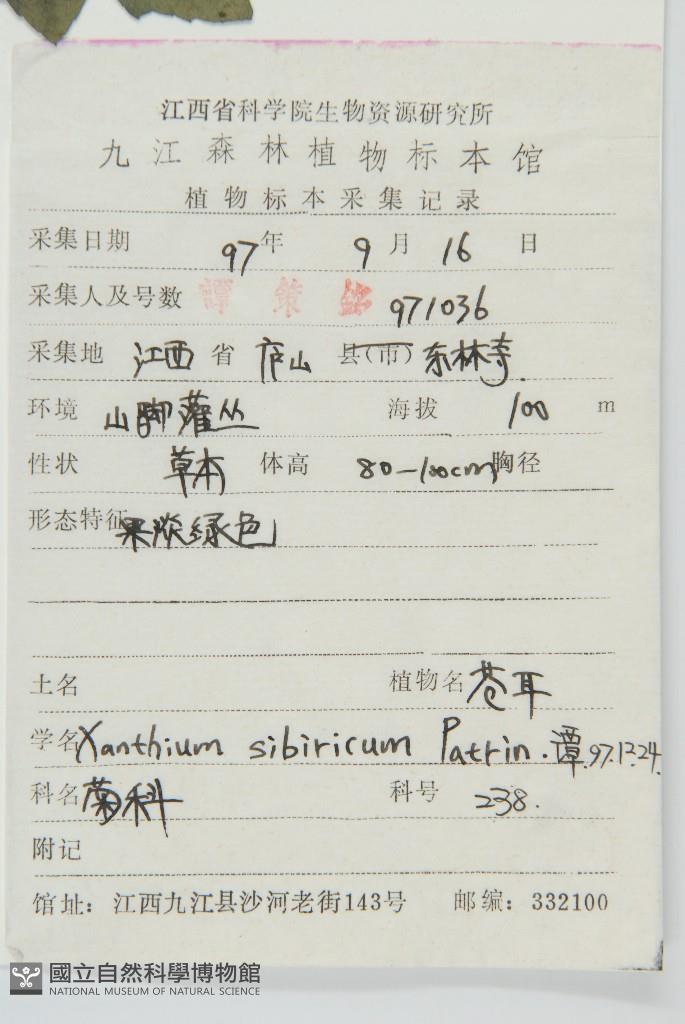 江西省科学院生物资源研究所
九江森林植物标本馆
植物标本采集记录
采集日期 97年 9月 16日
采集人及号数 譚策铭 971036
采集地 江西省 庐山 县(市) 东林寺.
环境 山脚灌丛 海拔 100 m
性状 草本 体高 80—100cm 胸径
形态特征 果淡绿色
土名 植物名 苍耳
学名 Xanthium sibiricum Patrin. 谭.97.12.24.
科名 菊科 科号 238.
附记
馆址：江西九江县沙河老街143号 邮编：332100
國立自然科學博物館
NATIONAL MUSEUM OF NATURAL SCIENCE